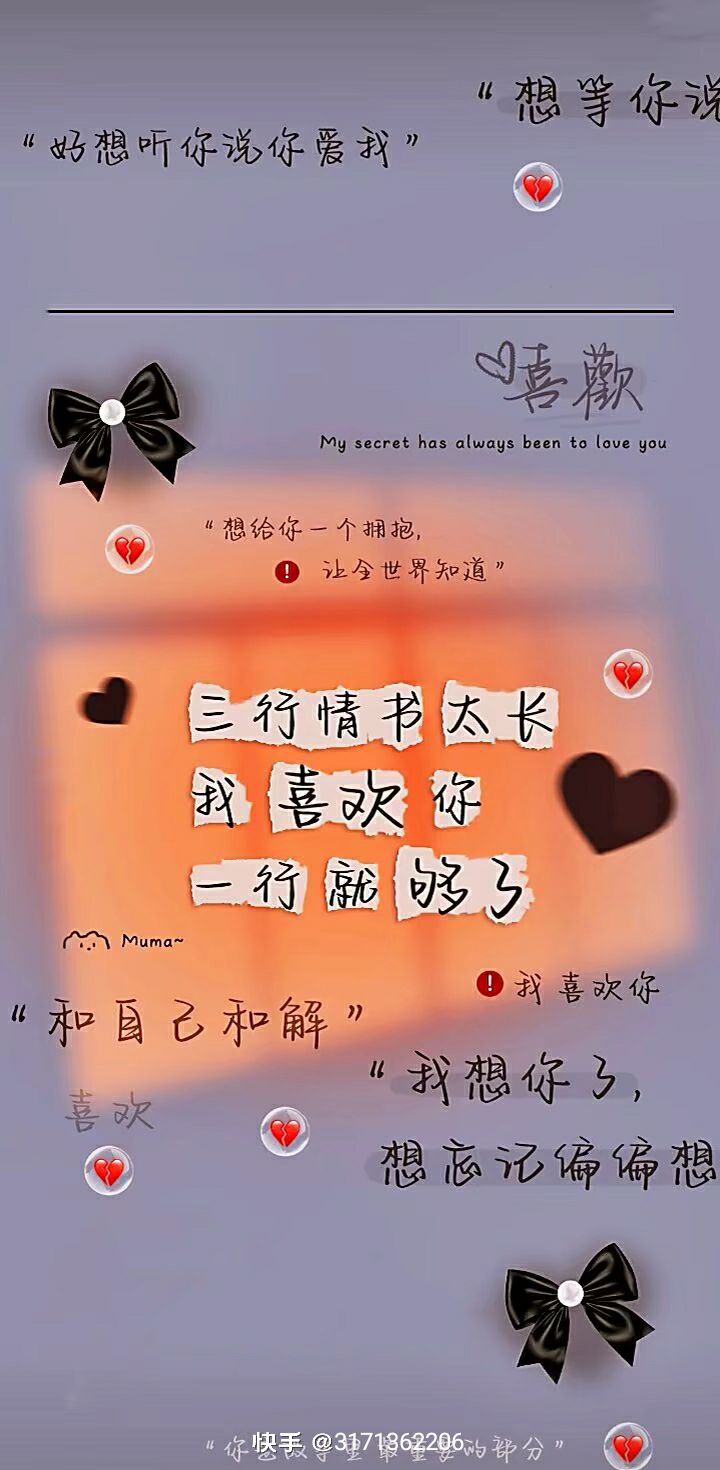 “想等你说
“好想听你说你爱我”
喜歡
My secret has always been to love you
“想给你一个拥抱,
! 让全世界知道”
三行情书太长
我喜欢你
一行就够了
Muma~
! 我喜欢你
“和自己和解”
“我想你了,
喜欢
想忘记偏偏想
快手 @3171362206
“你是故事里最重要的部分”